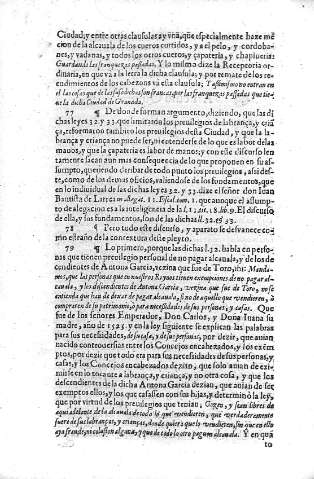 Ciudad, y entre otras clausulas ay vna, que especialmente haze mē
cion de la alcauala de los cueros cortidos, y a el pelo, y cordoba-
nes, y vadanas, y todos los otros cueros, y çapateria, y chapineria:
Guardando las franquezas passadas. Y lo mismo dize la Receptoria or-
dinaria, en que va a la letra la dicha clausula; y por remate de los re-
rendimientos de los cabezones va esta clausula;
la dicha Ciudad de Granada.
77 ¶ De donde forman argumento, diziendo, que las di
chas leyes 32. y 33. que limitaron los preuilegios de labrança, y criā
ça, reformaron tambien los preuilegios desta Ciudad, y que la la-
brança y criança no puede ser, ni entenderse de lo que es labor de las
manos, y que la çapateria es labor de manos; y con este discurso len
tamente sacan aun mas consequencia de lo que proponen en su as-
sumpto, queriendo derribar de todo punto los preuilegios, assi des-
te, como de los demas oficios, valiendose de los fundamentos, que
en lo indiuidual de las dichas leyes 32. y 33. dize el señor don Iuan
Bautista de Larrea 1. que aunque el assump-
to de alegacion es a la El discurso
de ella, y sus fundamentos, son de las dichas ll. 32. et 33.
78 ¶ Pero todo este discurso, y aparato se desvanece co-
mo estraño de la contextura deste pleyto.
79 ¶ Lo primero, porque las dichas ll. 32. habla en perso-
nas que tienen preuilegio personal de no pagar alcauala, y de los de
cendientes de Antona Garcia, vezina que fue de Toro, ibi: Manda-
mos, que las personas que en nuestros Reynos tienen exempciones de no pagar al-
cauala, y los descendientes de Antona Garcia, vezina que fue de Toro, no se
entienda que han de dexar de pagar alcauala, sino de aquello que vendieren, ò
compraren de su patrimonio, ò para necessidades de sus personas, y casas. Que
fue de los señores Emperador, Don Carlos, y Doña Iuana su
madre, año de 1525. y en la ley siguiente se explican las palabras
para sus necessidades, de su casa, y de sus personas, por dezir, que auian
nacido controuersias entre los Concejos encabezados, y los exēm
ptos, por dezir que todo era para sus necessidades de sus personas, y
casas, y los Concejos encabezados dezian, que solo auian de exi-
mirse en lo tocante a labrança, y criança, y no otra cosa, y que los
descendientes de la dicha Antona Garcia dezian, que auian de ser
exemptos ellos, y los que casassen con sus hijas, y determinò la ley,
que por virtud de los preuilegios que tenian; Gozen, y sean libres de
aqui adelante de la alcauala de todo lo que vendieren, que verdaderamente
fuere de sus labranças, y crianças, donde quiera que lo vendieren, sin que en ello
aya fraude, ni calassion alguna, y que de todo lo otro paguen alcauala. Y en quā
to